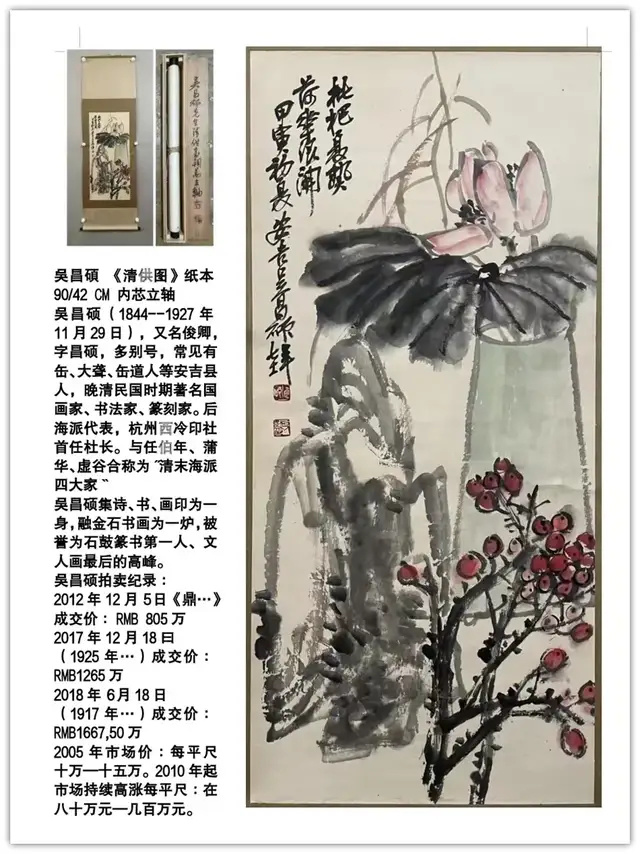 吳昌碩 《清供图》纸本
90/42 CM 内芯立轴
吴昌硕（1844--1927 年
11 月 29 日），又名俊卿，
字昌硕，多别号，常见有
缶、大聋、缶道人等安吉县
人，晚清民国时期著名国
画家、书法家、篆刻家。后
海派代表，杭州西冷印社
首任杜长。与任伯年、蒲
华、虚谷合称为“清末海派
四大家“
吴昌硕集诗、书、画印为一
身，融金石书画为一炉，被
誉为石鼓篆书第一人、文
人画最后的高峰。
吴昌硕拍卖纪录：
2012 年 12 月 5日《鼎…》
成交价：RMB 805 万
2017 年 12 月 18 曰
（1925 年…）成交价：
RMB1265 万
2018 年 6 月 18 日
（1917 年…）成交价：
RMB1667,50 万
2005 年市场价：每平尺
十万—十五万。2010 年起
市场持续高涨每平尺：在
八十万元—几百万元。
枇杷
甲寅初夏安吉吴昌硕